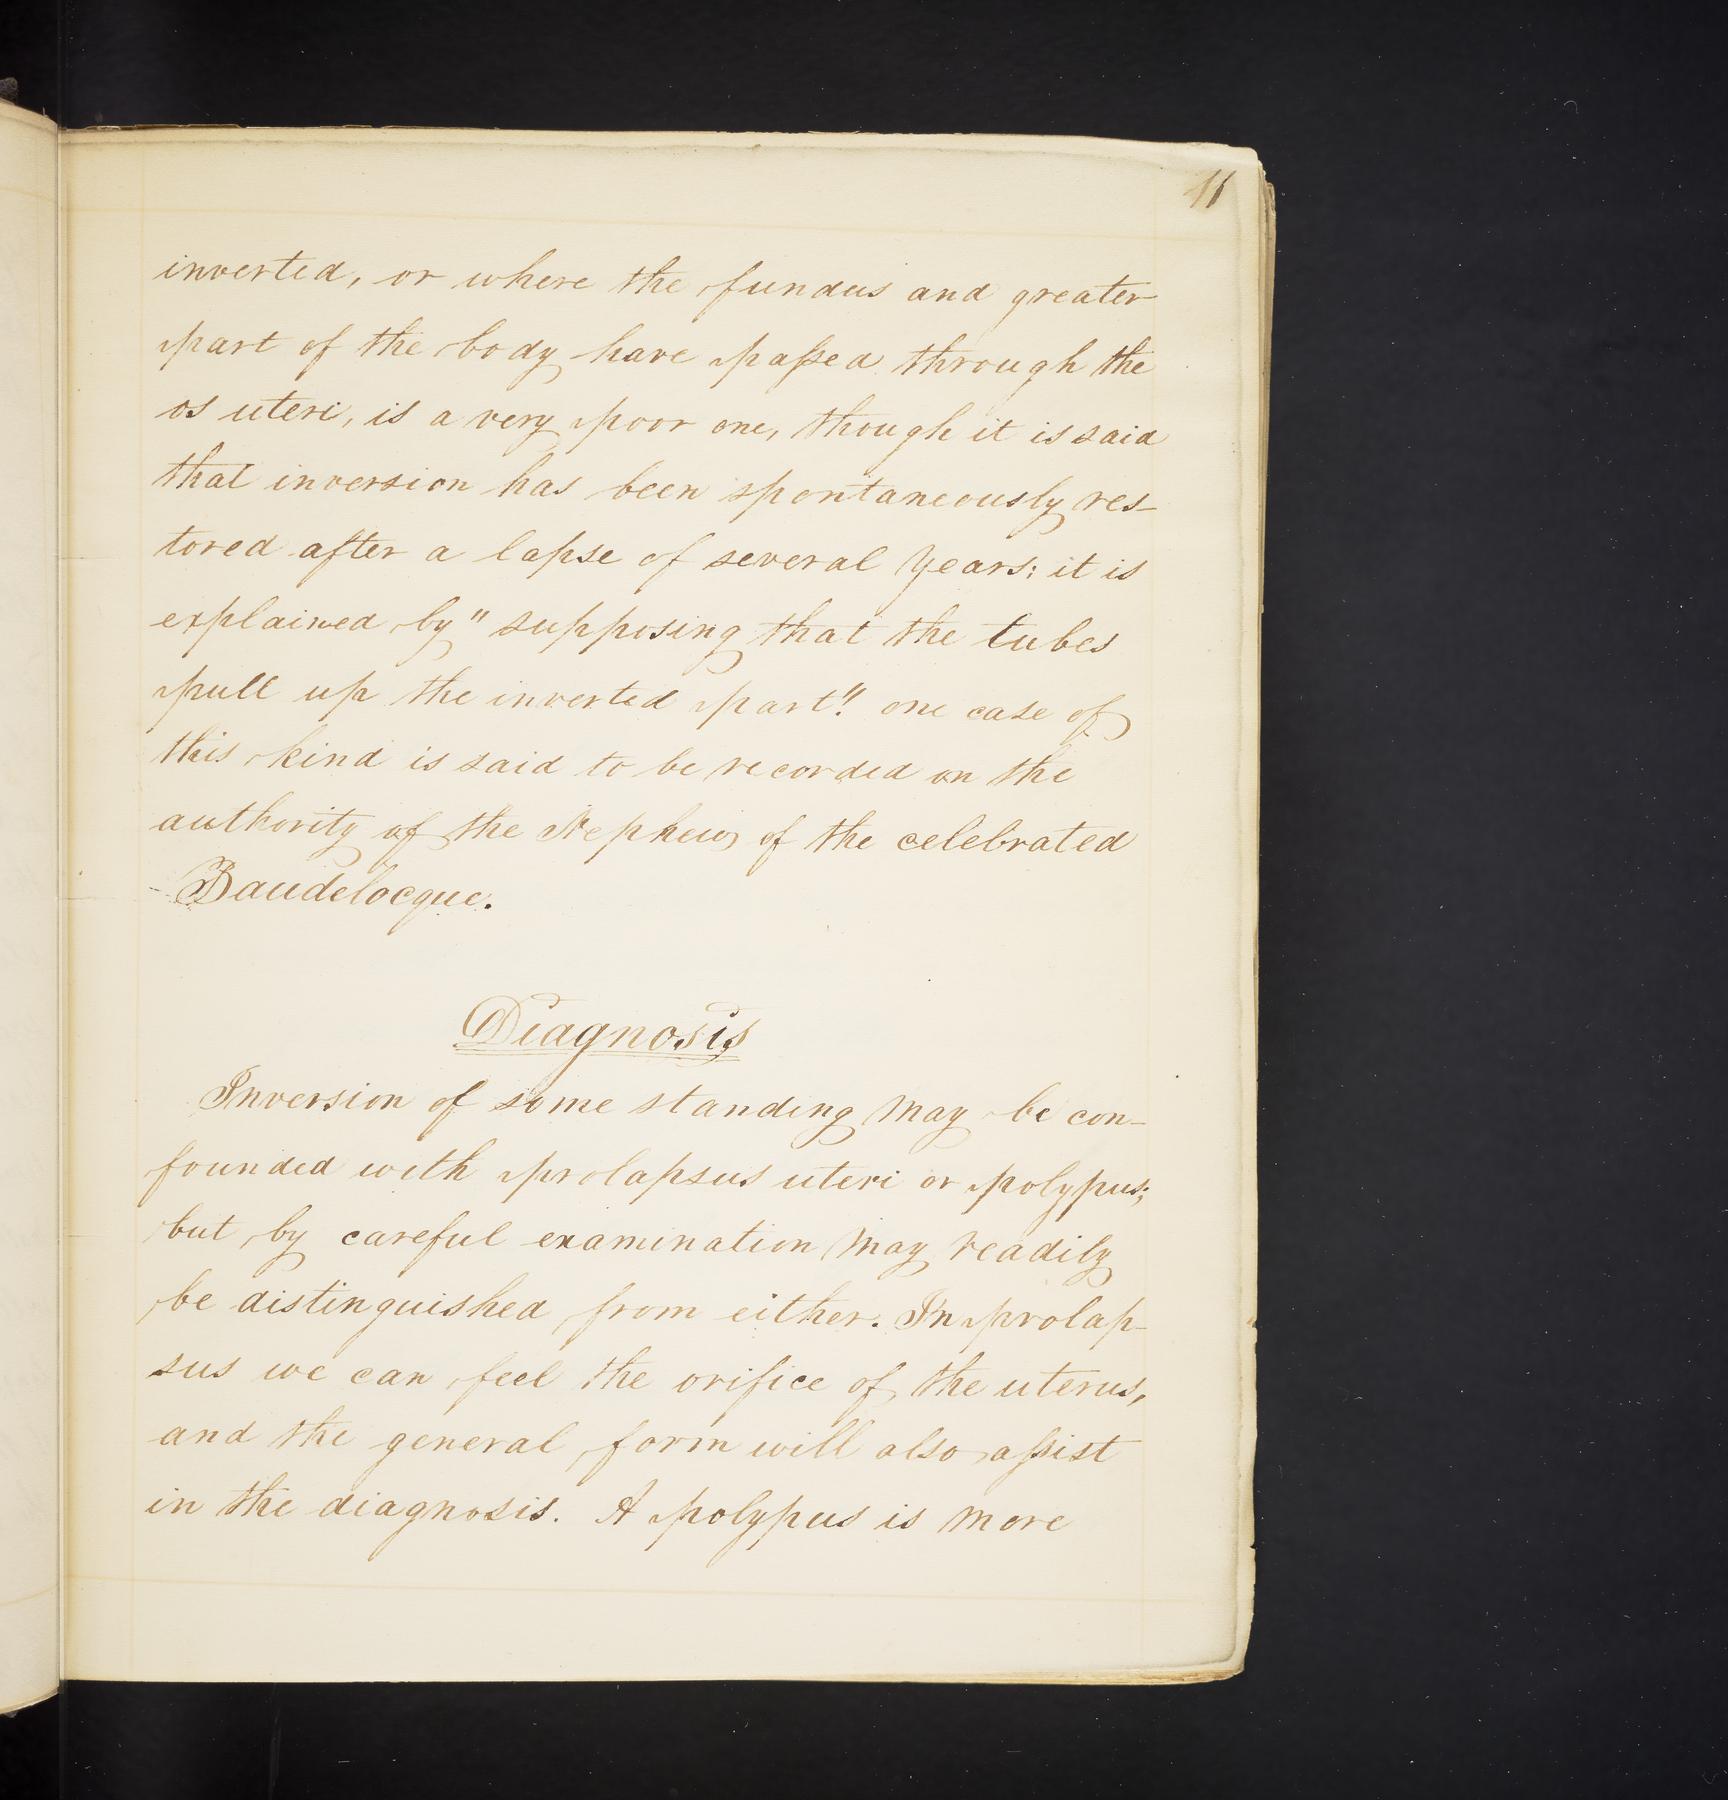 11
inverted, or where the fundus and greater
part of the body have passed through the
os uteri, is a very poor one, though it is said
that inversion has been spontaneously res-
tored after a lapse of several years: it is
explained by "supposing that the tubes
pull up the inverted part". one case of
this kind is said to be recorded on the
authority of the Nephew of the celebrated
Baudelocque.
Diagnosis
Inversion of some standing may be con-
founded with prolapsus uteri or polypus;
but by careful examination may readily
be distinguished from either. In prolap-
sus we can feel the orifice of the uterus,
and the general form will also assist
in the diagnosis. A polypus is more